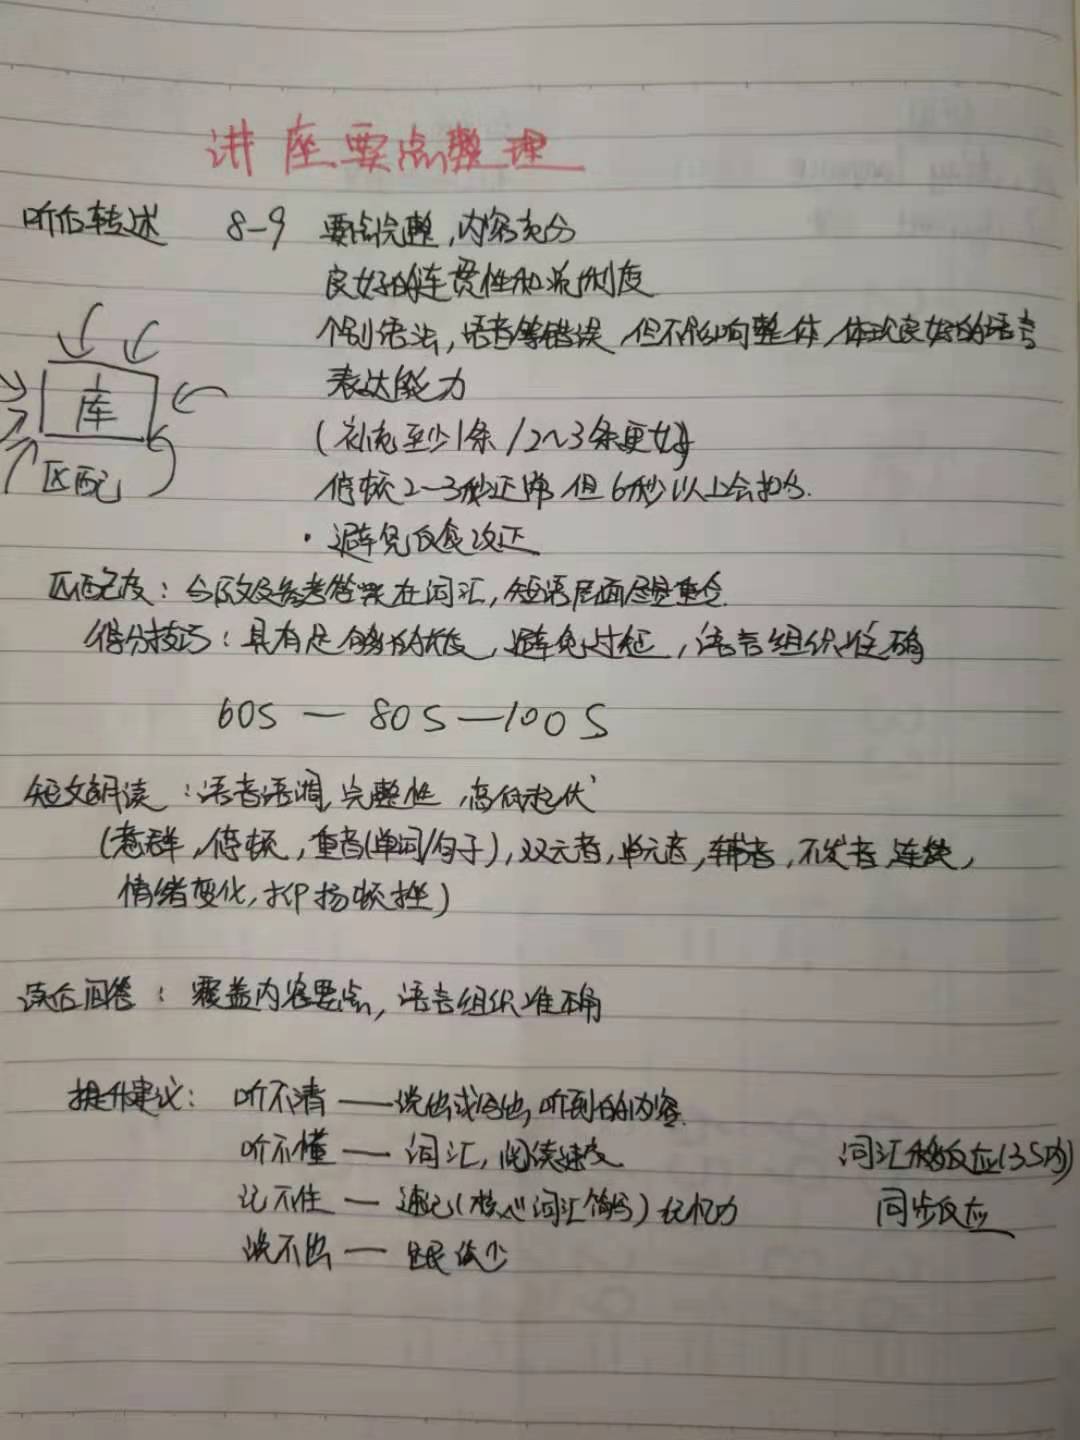 讲座要点整理
听后转述 8-9 要点完整,内容充分
良好的连贯性和流利度
个别语法,语音等错误,但不影响整体,体现良好的语言
表达能力
(补充至少1条/2~3条更好)
停顿2-3秒正常 但6秒以上会扣分.
·避免反复改正
库
匹配
匹配度:与原文及参考答案在词汇,短语层面尽量重合
得分技巧:具有足够的长度,避免过短,语言组织准确
60S — 80S — 100S
短文朗读:语音语调,完整性,高低起伏
(意群,停顿,重音(单词/句子),双元音,单元音,辅音,不发音,连读,
情绪变化,抑扬顿挫)
读后回答:覆盖内容要点,语言组织准确
提升建议:听不清——说出或写出听到的内容.
听不懂——词汇,阅读速度 词汇 反应(3S内)
记不住—速记(核心词汇简写)记忆力 同步反应
说不出—